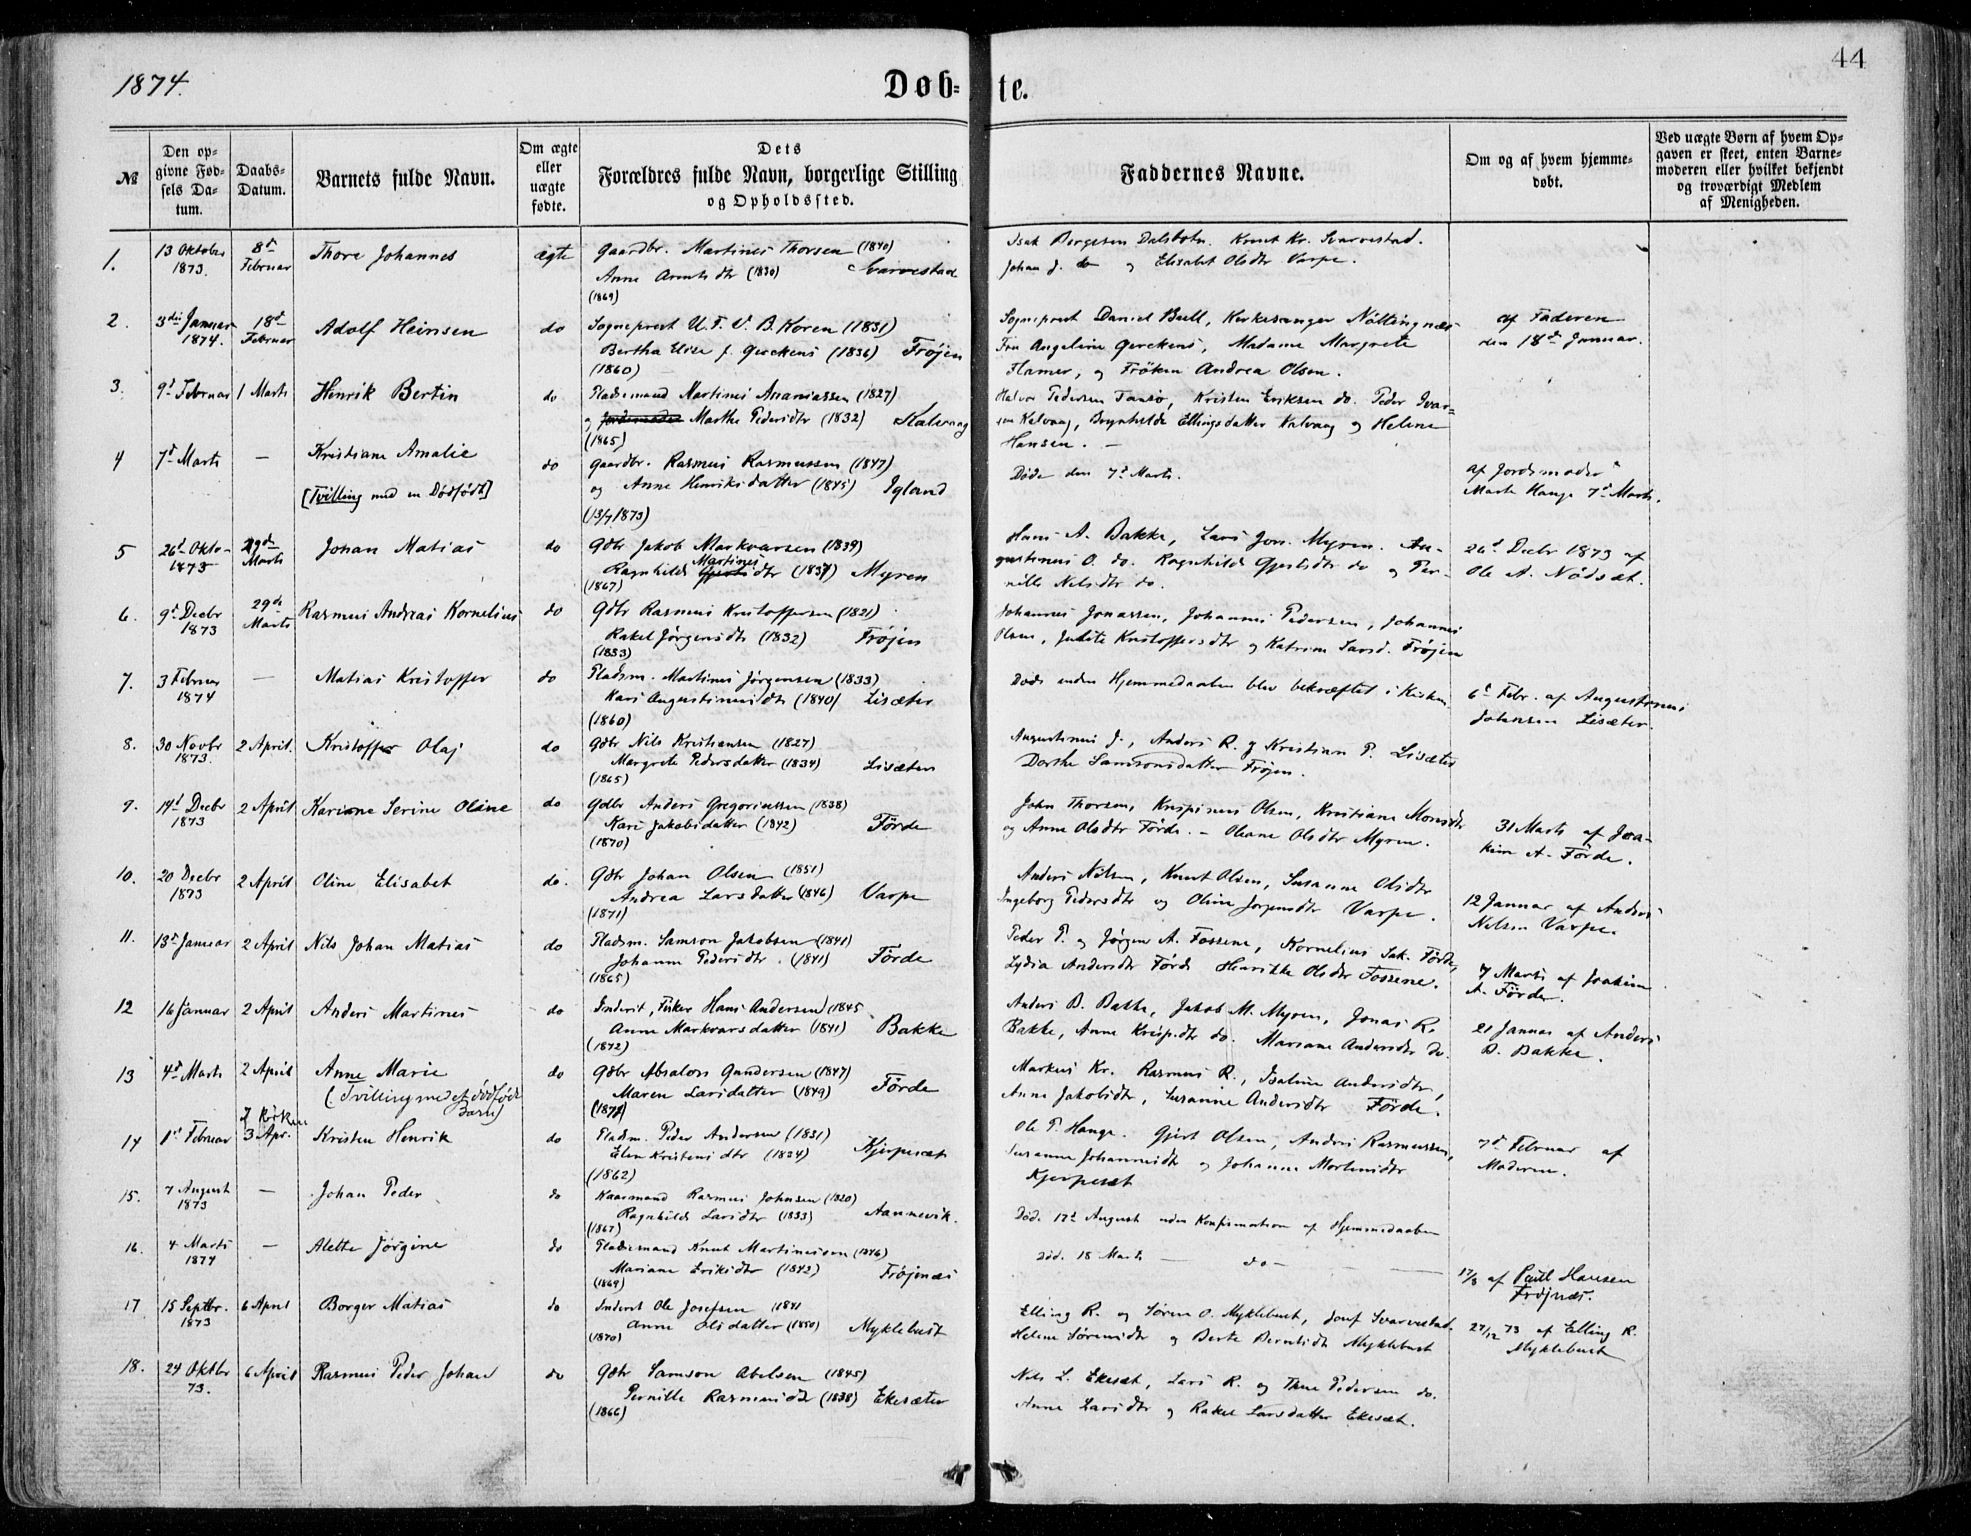 1874.
Døb-
te.
44
№
Den op-
givne Fød-
sels Da-
tum.
Daabs-
Datum.
Barnets fulde Navn.
Om ægte
eller
uægte
fødte.
Dets
Forældres fulde Navn, borgerlige Stilling
og Opholdssted.
Faddernes Navne.
Om og af hvem hjemme-
døbt.
Ved uægte Børn af hvem Op-
gaven er skeet, enten Barne-
moderen eller hvilket bekjendt
og troværdigt Medlem
af Menigheden.
1.
13 Oktober
1873.
8d
Februar
Thore Johannes
ægte
Gaardbr. Martines Thorsen (1840)
Anne Arentsdtr (1830) Svarvestad
(1869)
Isak Børgesen Dalsbotn. Knut Kr. Svarvestad.
Johan J. do og Elisabet Olsdtr Varpe.
2.
3die Januar
1874.
18d
Februar
Adolf Heinsen
do
Sogneprest U. F. V. B. Koren (1831)
Bertha Elise f. Gerckens (1836) Frøjen
(1860)
Sogneprest Daniel Bull, Kirkesanger Nøttingnæs
Fru Angeline Gerckens, Madame Margrete
Hamer, og Frøken Andrea Olsen.
af Faderen
den 18d Januar.
3.
9d Februar
1 Marts
Henrik Bertin
do
Pladsemand Martines Ananiassen (1827)
og Marthe Pedersdtr (1832) Kalvaag
(1865)
Halvor Pedersen Tansø, Kristen Eriksen do. Peder Ivar-
sen Kalvaag, Brynhilde Ellingsdatter Kalvaag og Helene
Hansen. —
4
7d Marts
—
Kristiane Amalie
[Tvilling med en Dødfødt]
do
Gaardbr. Rasmus Rasmussen (1847)
og Anne Henriksdatter (1845) Igland
(13/7 1873)
Døde den 7d Marts.
af Jordemoder
Marte Hauge 7d Marts.
5
26d Okto-
1873
29de
Marts
Johan Matias
do
Gdbr Jakob Markvarsen (1839)
Ragnhild Martines dtr (1837) Myren
(1867)
Hans A. Bakke, Lars Jon. Myren. Au-
gustinus O. do. Ragnhild Gjertsdtr do og Per-
nille Nelsdtr do.
26d Decbr 1873 af
Ole A. Nødsæt.
6.
9d Decbr
1873
29de
Marts
Rasmus Andreas Kornelius
do
Gdbr Rasmus Kristoffersen (1821)
Rakel Jørgensdtr (1832) Frøjen
(1853)
Johannes Jonassen, Johannes Pedersen, Johannes
Olsen, Judite Kristoffersdtr og Katrine Larsd. Frøjen
7.
3 Februar
1874
—
Matias Kristoffer
do
Pladsm. Martines Jørgensen (1833)
Kari Augustinusdtr (1840) Lisæter
(1860)
Døde inden Hjemmedaaben blev bekræftet i Kirken
6d Febr. af Augustinus
Johnsen Lisæter.
8.
30 Novbr
1873.
2 April.
Kristoffer Olaj
do
Gdbr Nils Kristiansen (1827)
Margrete Pedersdatter (1834) Lisæter
(1865)
Augustinus J., Anders R. og Kristian P. Lisæter
Dorthe Samsonsdatter Frøjen.
9.
14d Decbr
1873
2 April
Kariane Serine Oline
do
Gdbr Anders Gregoriussen (1838)
Kari Jakobsdatter (1842) Førde
(1870)
John Thorsen, Krispinus Olsen, Kristiane Monsdtr
og Anne Olsdtr Førde. — Oleane Olsdtr Myren.
31 Marts af Joa-
kim A. Førde.
10.
20 Decbr
1873
2 April
Oline Elisabet
do.
Gdbr Johan Olsen (1851)
Andrea Larsdatter (1846) Varpe
(1871)
Anders Nilsen, Knut Olsen, Susanne Olsdtr
Ingeborg Pedersdtr og Oline Jørgensdtr Varpe.
12 Januar af Anders
Nelsen Varpe.
11.
13d Januar
2 April
Nils Johan Matias
do
Pladsm. Samson Jakobsen (1841)
Johanne Pedersdtr. (1841) Førde
(1865)
Peder P. og Jørgen A. Fossene, Kornelius Sak. Førde,
Lydia Andersdtr Førde Henrikke Olsdtr Fossene.
7 Marts af Joakim
A. Førde.
12
16 Januar
2 April
Anders Martines
do
Inderst, Fisker Hans Andersen (1845
Anne Markvarsdatter (1841) Bakke
(1872)
Anders B. Bakke, Jakob M. Myren, Jonas R.
Bakke, Anne Krisp.dtr do. Mariane Andersdtr do.
21 Januar af Anders
B. Bakke.
13
4d Marts
2 April
Anne Marie
(Tvilling med et dødfødt
Barn)
do
Gdbr Absalon Gundersen (1847)
Maren Larsdatter (1849) Førde
Markus Kr. Rasmus R., Isaline Andersdtr,
Anne Jakobsdtr, Susanne Andersdtr Førde.
14
1d Februar
I Kirken
3 Apr.
Kristen Henrik
do
Pladsm. Peder Andersen (1831)
Elen Kristensdtr (1824) Kjerpesæt
(1862)
Ole P. Hauge. Gjert Olsen, Anders Rasmussen,
Susanne Johannesdtr og Johanne Mortensdtr
Kjerpesæt
7d Februar af
Moderen.
15.
7 August
1873
—
Johan Peder
do
Kaarmand Rasmus Johnsen (1820)
Ragnhild Larsdtr (1833) Aannevik.
(1867)
Død. 17d August uden Konfirmation af Hjemmedaaben
16.
4 Marts
1874
—
Alette Jørgine
do
Pladsemand Knut Martinussen (1846)
Mariane Eriksdtr (1842) Frøjenæs
(1869)
Død. 18 Marts — do —
17/3 af Paul Hansen
Frøjnæs.
17
15 Septbr.
1873
6 April
Borger Matias
do
Inderst Ole Josefsen 1841
Anne Olsdatter (1850) Myklebust
(1870)
Elling R. og Søren O. Myklebust, Josef Svarvestad.
Helene Sørensdtr og Berte Berntsdtr Myklebust
27/12 73 af Elling R.
Myklebust
18.
24 Oktbr
73.
6 April
Rasmus Peder Johan
do
Gdbr Samson Abelsen (1845)
Pernille Rasmusdtr (1838) Ekesæter
(1866)
Nils L. Ekesæt, Lars R. og Thue Pedersen do.
Anne Larsdtr og Rakel Larsdatter Ekesæt.